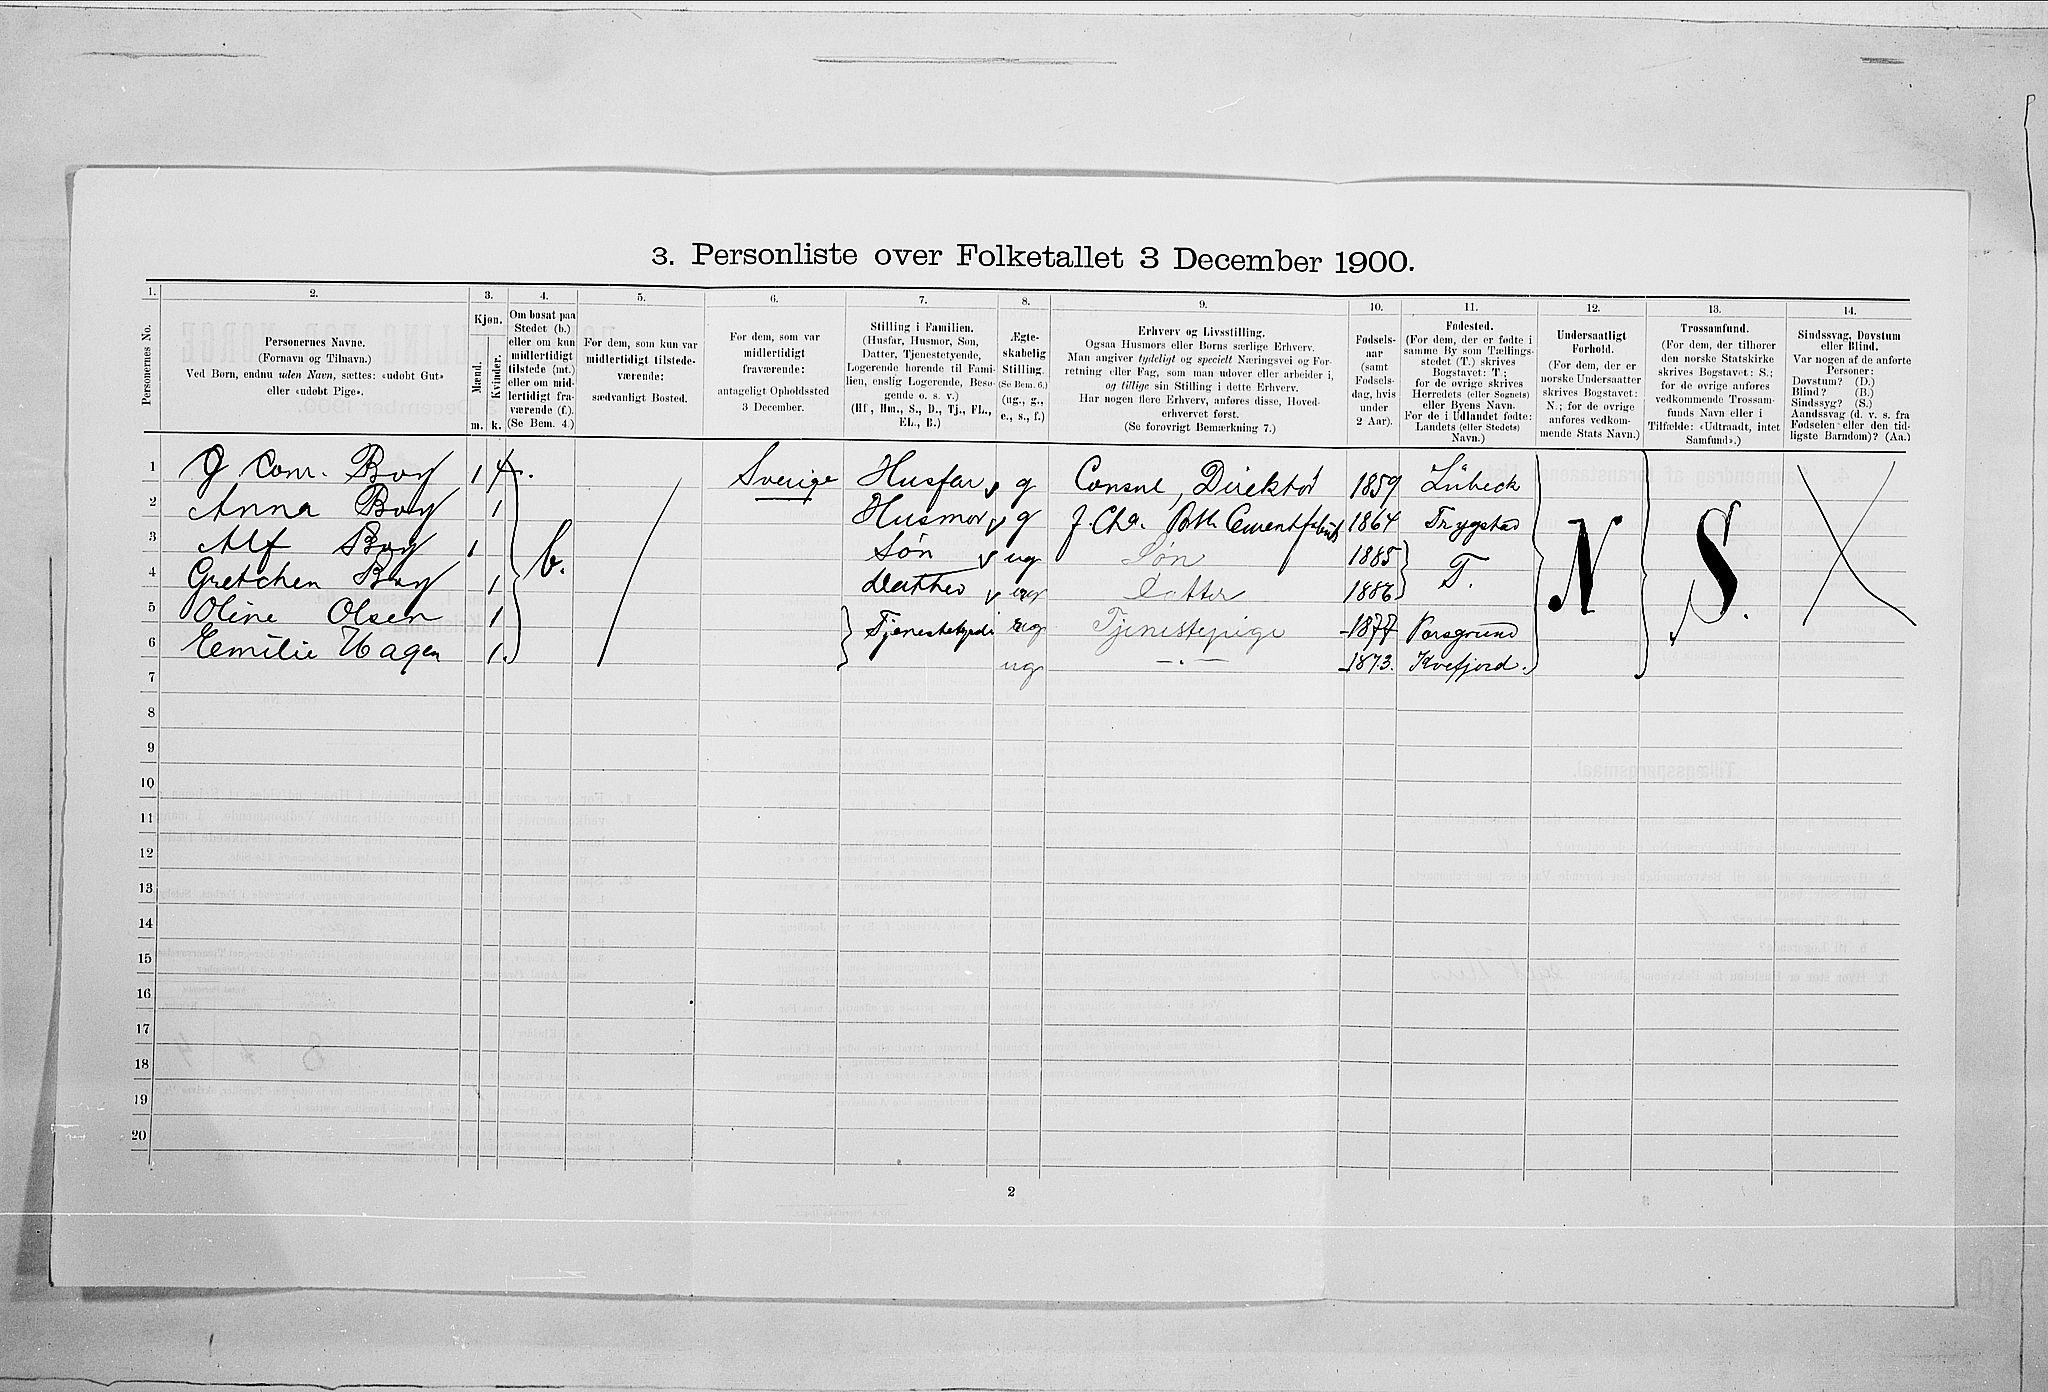 3. Personliste over Folketallet 3 December 1900.
1. 2. 3. 4. 5. 6. 7. 8. 9. 10. 11. 12. 13. 14.
Personernes No.
Personernes Navne.
(Fornavn og Tilnavn.)
Ved Børn, endnu uden Navn, sættes: «udøbt Gut»
eller «udøbt Pige».
Kjøn.
Mænd.
Kvinder.
m. k.
Om bosat paa
Stedet (b.)
eller om kun
midlertidigt
tilstede (mt.)
eller om mid-
lertidigt fra-
værende (f.).
(Se Bem. 4.)
For dem, som kun var
midlertidigt tilstede-
værende:
sædvanligt Bosted.
For dem, som var
midlertidigt
fraværende:
antageligt Opholdssted
3 December.
Stilling i Familien.
(Husfar, Husmor, Søn,
Datter, Tjenestetyende,
Logerende hørende til Fami-
lien, enslig Logerende, Besø-
gende o. s. v.)
(Hf., Hm., S., D., Tj., FL.,
EL., B.)
Ægte-
skabelig
Stilling.
(Se Bem. 6.)
(ug., g.,
e., s., f.)
Erhverv og Livsstilling.
Ogsaa Husmors eller Børns særlige Erhverv.
Man angiver tydeligt og specielt Næringsvei og For-
retning eller Fag, som man udover eller arbeider i,
og tillige sin Stilling i dette Erhverv.
Har nogen flere Erhverv, anføres disse, Hoved-
erhvervet først.
(Se forøvrigt Bemærkning 7.)
Fødsels-
aar
(samt
Fødsels-
dag, hvis
under
2 Aar).
Fødested.
(For dem, der er fødte i
samme By som Tællings-
stedet (T.) skrives
Bogstavet: T.;
for de øvrige skrives
Herredets (eller Sognets)
eller Byens Navn.
For de i Udlandet fødte:
Landets (eller Stedets)
Navn.)
Undersaatligt
Forhold.
(For dem, der er
norske Undersaatter
skrives Bogstavet:
N.; for de øvrige
anføres vedkom-
mende Stats Navn.)
Trossamfund.
(For dem, der tilhører
den norske Statskirke
skrives Bogstavet: S.;
for de øvrige anføres
vedkommende Trossam-
funds Navn eller i
Tilfælde: «Udtraadt, intet
Samfund».)
Sindssvag, Døvstum
eller Blind.
Var nogen af de anførte
Personer:
Døvstum? (D.)
Blind? (B.)
Sindssyg? (S.)
Aandssvag (d. v. s. fra
Fødselen eller den tid-
ligste Barndom)? (Aa.)
1 Boy 1 Sverige Husfar g Consul, Direktør 1859 Lübeck
2 Anna Boy 1 Husmor g 1864 Trygstad
3 Alf Boy 1 b. Søn ug Søn 1885 T. N S.
4 Gretchen Boy 1 Datter ug Datter 1886
5 Oline Olsen 1 ug Tjenestepige 1877 Porsgrund
6 Emilie Hagen 1 ug — " — 1873. Kvefjord.
7
8
9
10
11
12
13
14
15
16
17
18
19
20
2